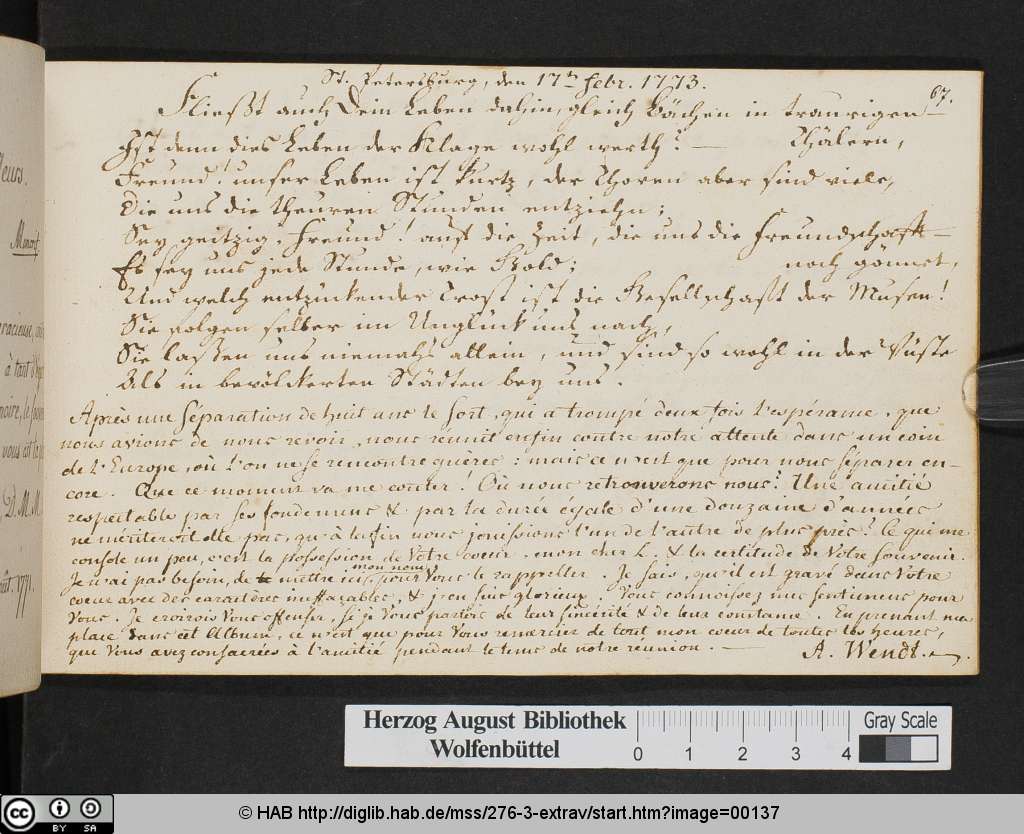 St. Petersburg, den 17ten Febr. 1773.
67.
Fließt auch Dein Leben dahin, gleich Bächen in traurigen
Thälern,
Ist denn dies Leben der Klage wohl werth? —
Freund! unser Leben ist kurtz, der Thoren aber sind viele,
Die uns die theuren Stunden entziehn;
Sey geitzig, Freund! auf die Zeit, die uns die Freundschafft
noch gönnet,
Es sey uns jede Stunde, wie Gold;
Und welch entzückender Trost ist die Gesellschafft der Musen!
Sie folgen selber im Unglück uns nach,
Sie laßen uns niemahls allein, und sind so wohl in der Wüste
Als in bevölckerten Städten bey uns.
Après une séparation de huit ans le sort, qui a trompé deux fois l'espérance, que
nous avions de nous revoir, nous réunit enfin contre notre attente dans un coin
de l'Europe, où l'on ne se rencontre guères: mais ce n'est que pour nous séparer en-
core. Que ce moment va me couter! Où nous retrouverons nous? Une amitié
respectable par ses fondemens & par la durée égale d'une douzaine d'années
ne mériteroit elle pas, qu'à la fin nous jouissions l'un de l'autre de plus près? Ce qui me
console un peu, c'est la possession de Votre coeur, mon cher L. & la certitude de Votre souvenir.
Je n'ai pas besoin, de mettre ici mon nom, pour Vous le rappeller. Je sais, qu'il est gravé dans Votre
coeur avec des caractères ineffaçables, & j'en suis glorieux. Vous connoissez mes sentimens pour
Vous. Je croirois Vous offenser, si je Vous parlois de leur sincérité & de leur constance. En prenant ma
place dans cet Album, ce n'est que pour Vous remercier de tout mon coeur de toutes les heures,
que Vous avez consacrées à l'amitié pendant le tems de notre réunion. —
A. Wendt.
à tant
vous
D. M. M.
1771.
Herzog August Bibliothek
Wolfenbüttel
0 1 2 3 4
Gray Scale
cc BY SA
© HAB http://diglib.hab.de/mss/276-3-extrav/start.htm?image=00137